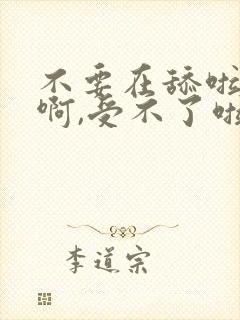 不要在舔啦
啊,受不了啦
李道宗